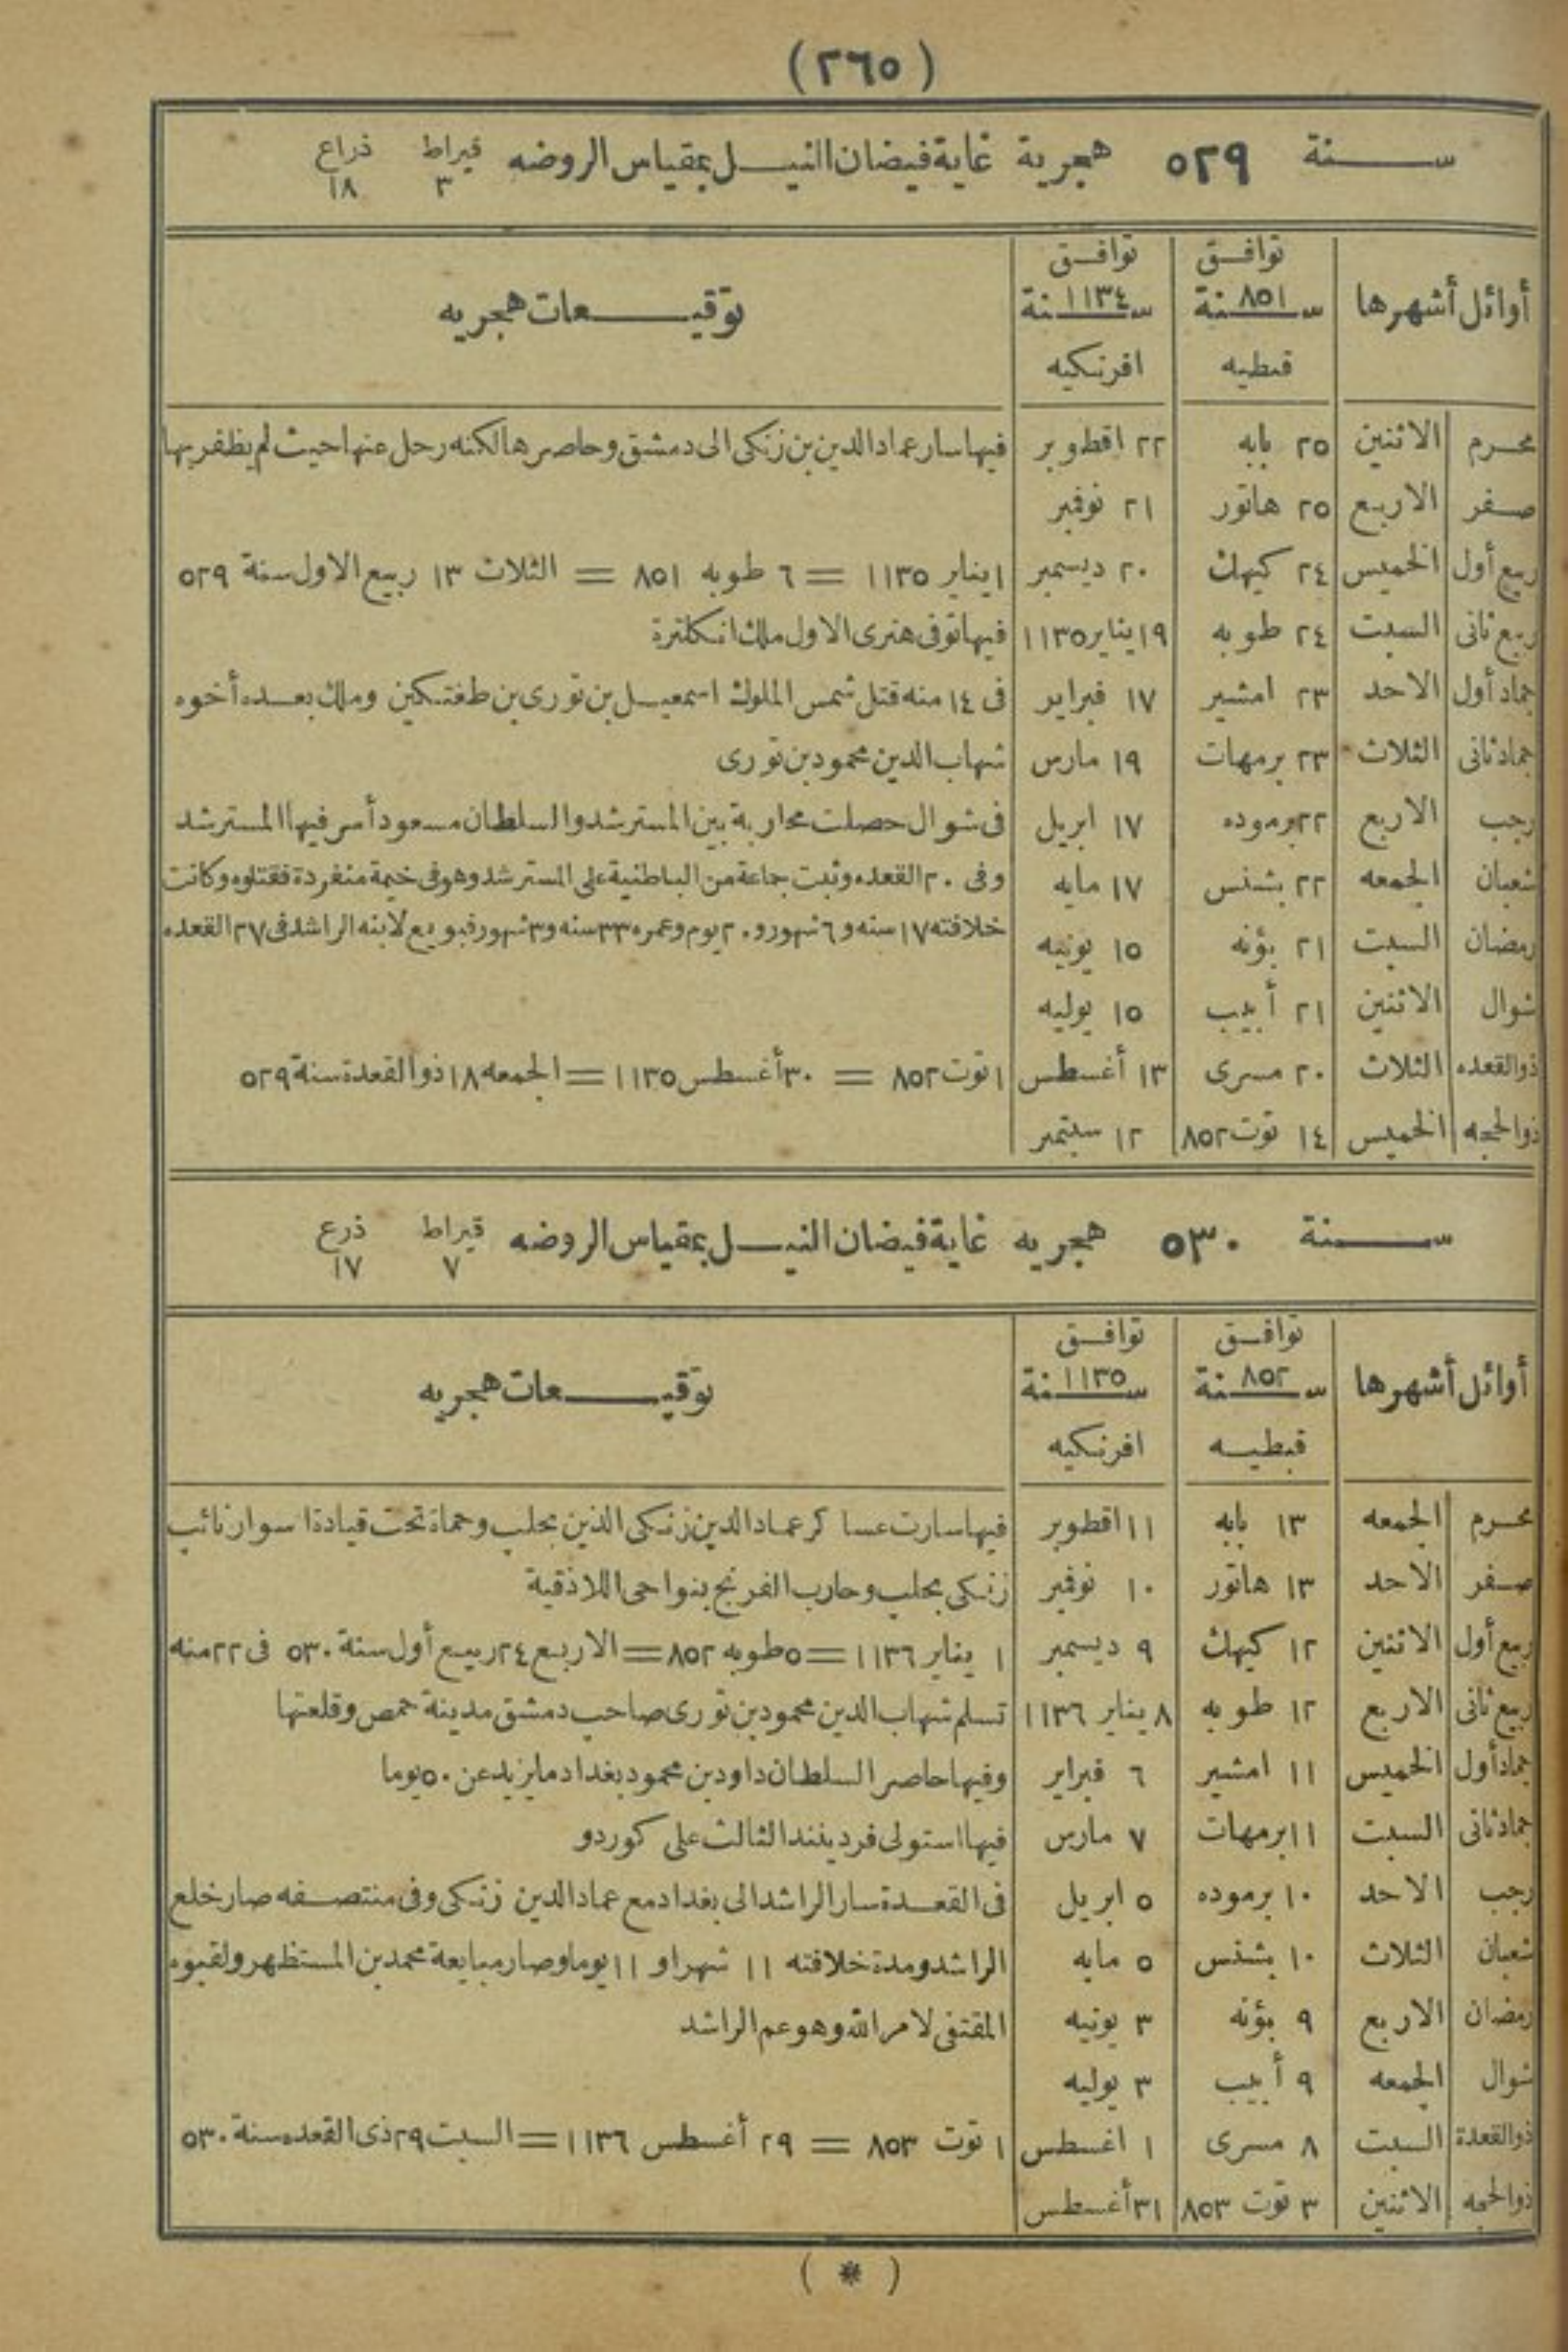 (٢٦٥)
سنة ٥٢٩ هجرية غاية فيضان النيل بمقياس الروضه قيراط ٣ ذراع ١٨
أوائل أشهرها | توافق سنة ٨٥١ قبطيه | توافق سنة ١١٣٤ افرنكيه | توقيعات هجريه
محرم الاثنين | ٢٥ بابه | ٢٢ اقطوبر | فيها سار عماد الدين بن زنكى الى دمشق وحاصرها لكنه رحل عنها حيث لم يظفر بها
صفر الاربع | ٢٥ هاتور | ٢١ نوفمبر
ربيع أول الخميس | ٢٤ كيهك | ٢٠ ديسمبر | ١ يناير ١١٣٥ = ٦ طوبه ٨٥١ = الثلاث ١٣ ربيع الاول سنة ٥٢٩
ربيع ثانى السبت | ٢٤ طوبه | ١٩ يناير ١١٣٥ | فيها توفى هنرى الاول ملك انكلترة
جماد أول الاحد | ٢٣ امشير | ١٧ فبراير | فى ١٤ منه قتل شمس الملوك اسمعيل بن تورى بن طغتكين وملك بعده أخوه
جماد ثانى الثلاث | ٢٣ برمهات | ١٩ مارس | شهاب الدين محمود بن تورى
رجب الاربع | ٢٢ برموده | ١٧ ابريل | فى شوال حصلت محاربة بين المسترشد والسلطان مسعود أسر فيها المسترشد
شعبان الجمعه | ٢٢ بشنس | ١٧ مايه | وفى ٢٠ القعده وثبت جاعة من الباطنية على المسترشد وهو فى خيمة منفردة فقتلوه وكانت
رمضان السبت | ٢١ بؤنه | ١٥ يونيه | خلافته ١٧ سنه و ٦ شهور و ٢٠ يوم وعمره ٣٣ سنه و ٣ شهور فبويع لابنه الراشد فى ٢٧ القعده
شوال الاثنين | ٢١ أبيب | ١٥ يوليه
ذوالقعده الثلاث | ٢٠ مسرى | ١٣ أغسطس | ١ توت ٨٥٢ = ٣٠ أغسطس ١١٣٥ = الجمعه ١٨ ذوالقعدة سنة ٥٢٩
ذوالحجه الخميس | ١٤ توت ٨٥٢ | ١٢ سبتمبر
سنة ٥٣٠ هجريه غاية فيضان النيل بمقياس الروضه قيراط ٧ ذرع ١٧
أوائل أشهرها | توافق سنة ٨٥٢ قبطيه | توافق سنة ١١٣٥ افرنكيه | توقيعات هجريه
محرم الجمعه | ١٣ بابه | ١١ اقطوبر | فيها سارت عساكر عماد الدين زنكى الذين بحلب وحماة تحت قيادة اسوار نائب
صفر الاحد | ١٣ هاتور | ١٠ نوفمبر | زنكى بحلب وحارب الفرنج بنواحى اللاذقية
ربيع أول الاثنين | ١٢ كيهك | ٩ ديسمبر | ١ يناير ١١٣٦ = ٥ طوبه ٨٥٢ = الاربع ٢٤ ربيع أول سنة ٥٣٠ فى ٢٢ منه
ربيع ثانى الاربع | ١٢ طوبه | ٨ يناير ١١٣٦ | تسلم شهاب الدين محمود بن تورى صاحب دمشق مدينة حمص وقلعتها
جماد أول الخميس | ١١ امشير | ٦ فبراير | وفيها حاصر السلطان داود بن محمود بغداد ما يزيد عن ٥٠ يوما
جماد ثانى السبت | ١١ برمهات | ٧ مارس | فيها استولى فردينند الثالث على كوردو
رجب الاحد | ١٠ برموده | ٥ ابريل | فى القعدة سار الراشد الى بغداد مع عماد الدين زنكى وفى منتصفه صار خلع
شعبان الثلاث | ١٠ بشنس | ٥ مايه | الراشد ومدة خلافته ١١ شهرا و ١١ يوما وصار مبايعة محمد بن المستظهر ولقبوه
رمضان الاربع | ٩ بؤنه | ٣ يونيه | المقتفى لامر الله وهو عم الراشد
شوال الجمعه | ٩ أبيب | ٣ يوليه
ذوالقعدة السبت | ٨ مسرى | ١ اغسطس | ١ توت ٨٥٣ = ٢٩ أغسطس ١١٣٦ = السبت ٢٩ ذى القعده سنة ٥٣٠
ذوالحجه الاثنين | ٣ توت ٨٥٣ | ٣١ أغسطس
( * )